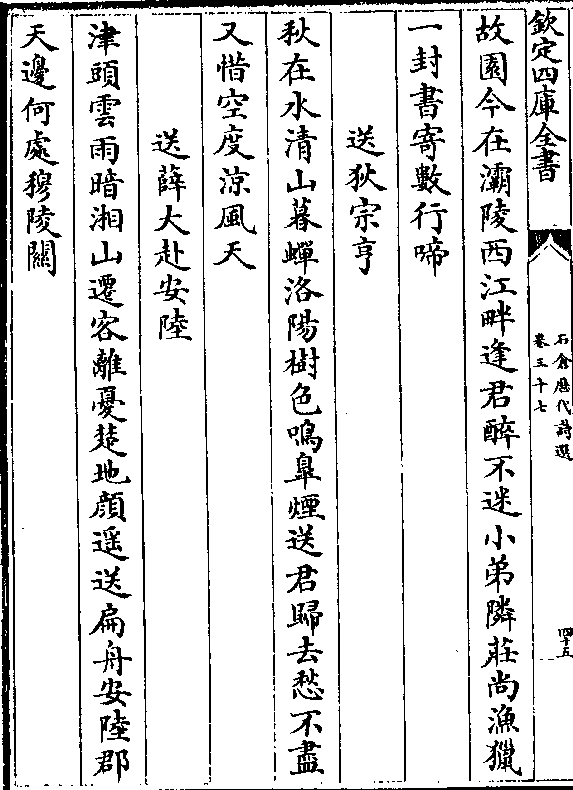 欽定四庫全書
石倉歷代詩選
卷三十七
四十五
故園今在灞陵西江畔逢君醉不迷小弟隣莊尚漁獵
一封書寄數行啼
送狄宗亨
秋在水清山暮蟬洛陽樹色鳴臯煙送君歸去愁不盡
又惜空度涼風天
送薛大赴安陸
津頭雲雨暗湘山遷客離憂楚地顔遥送扁舟安陸郡
天邊何處穆陵關